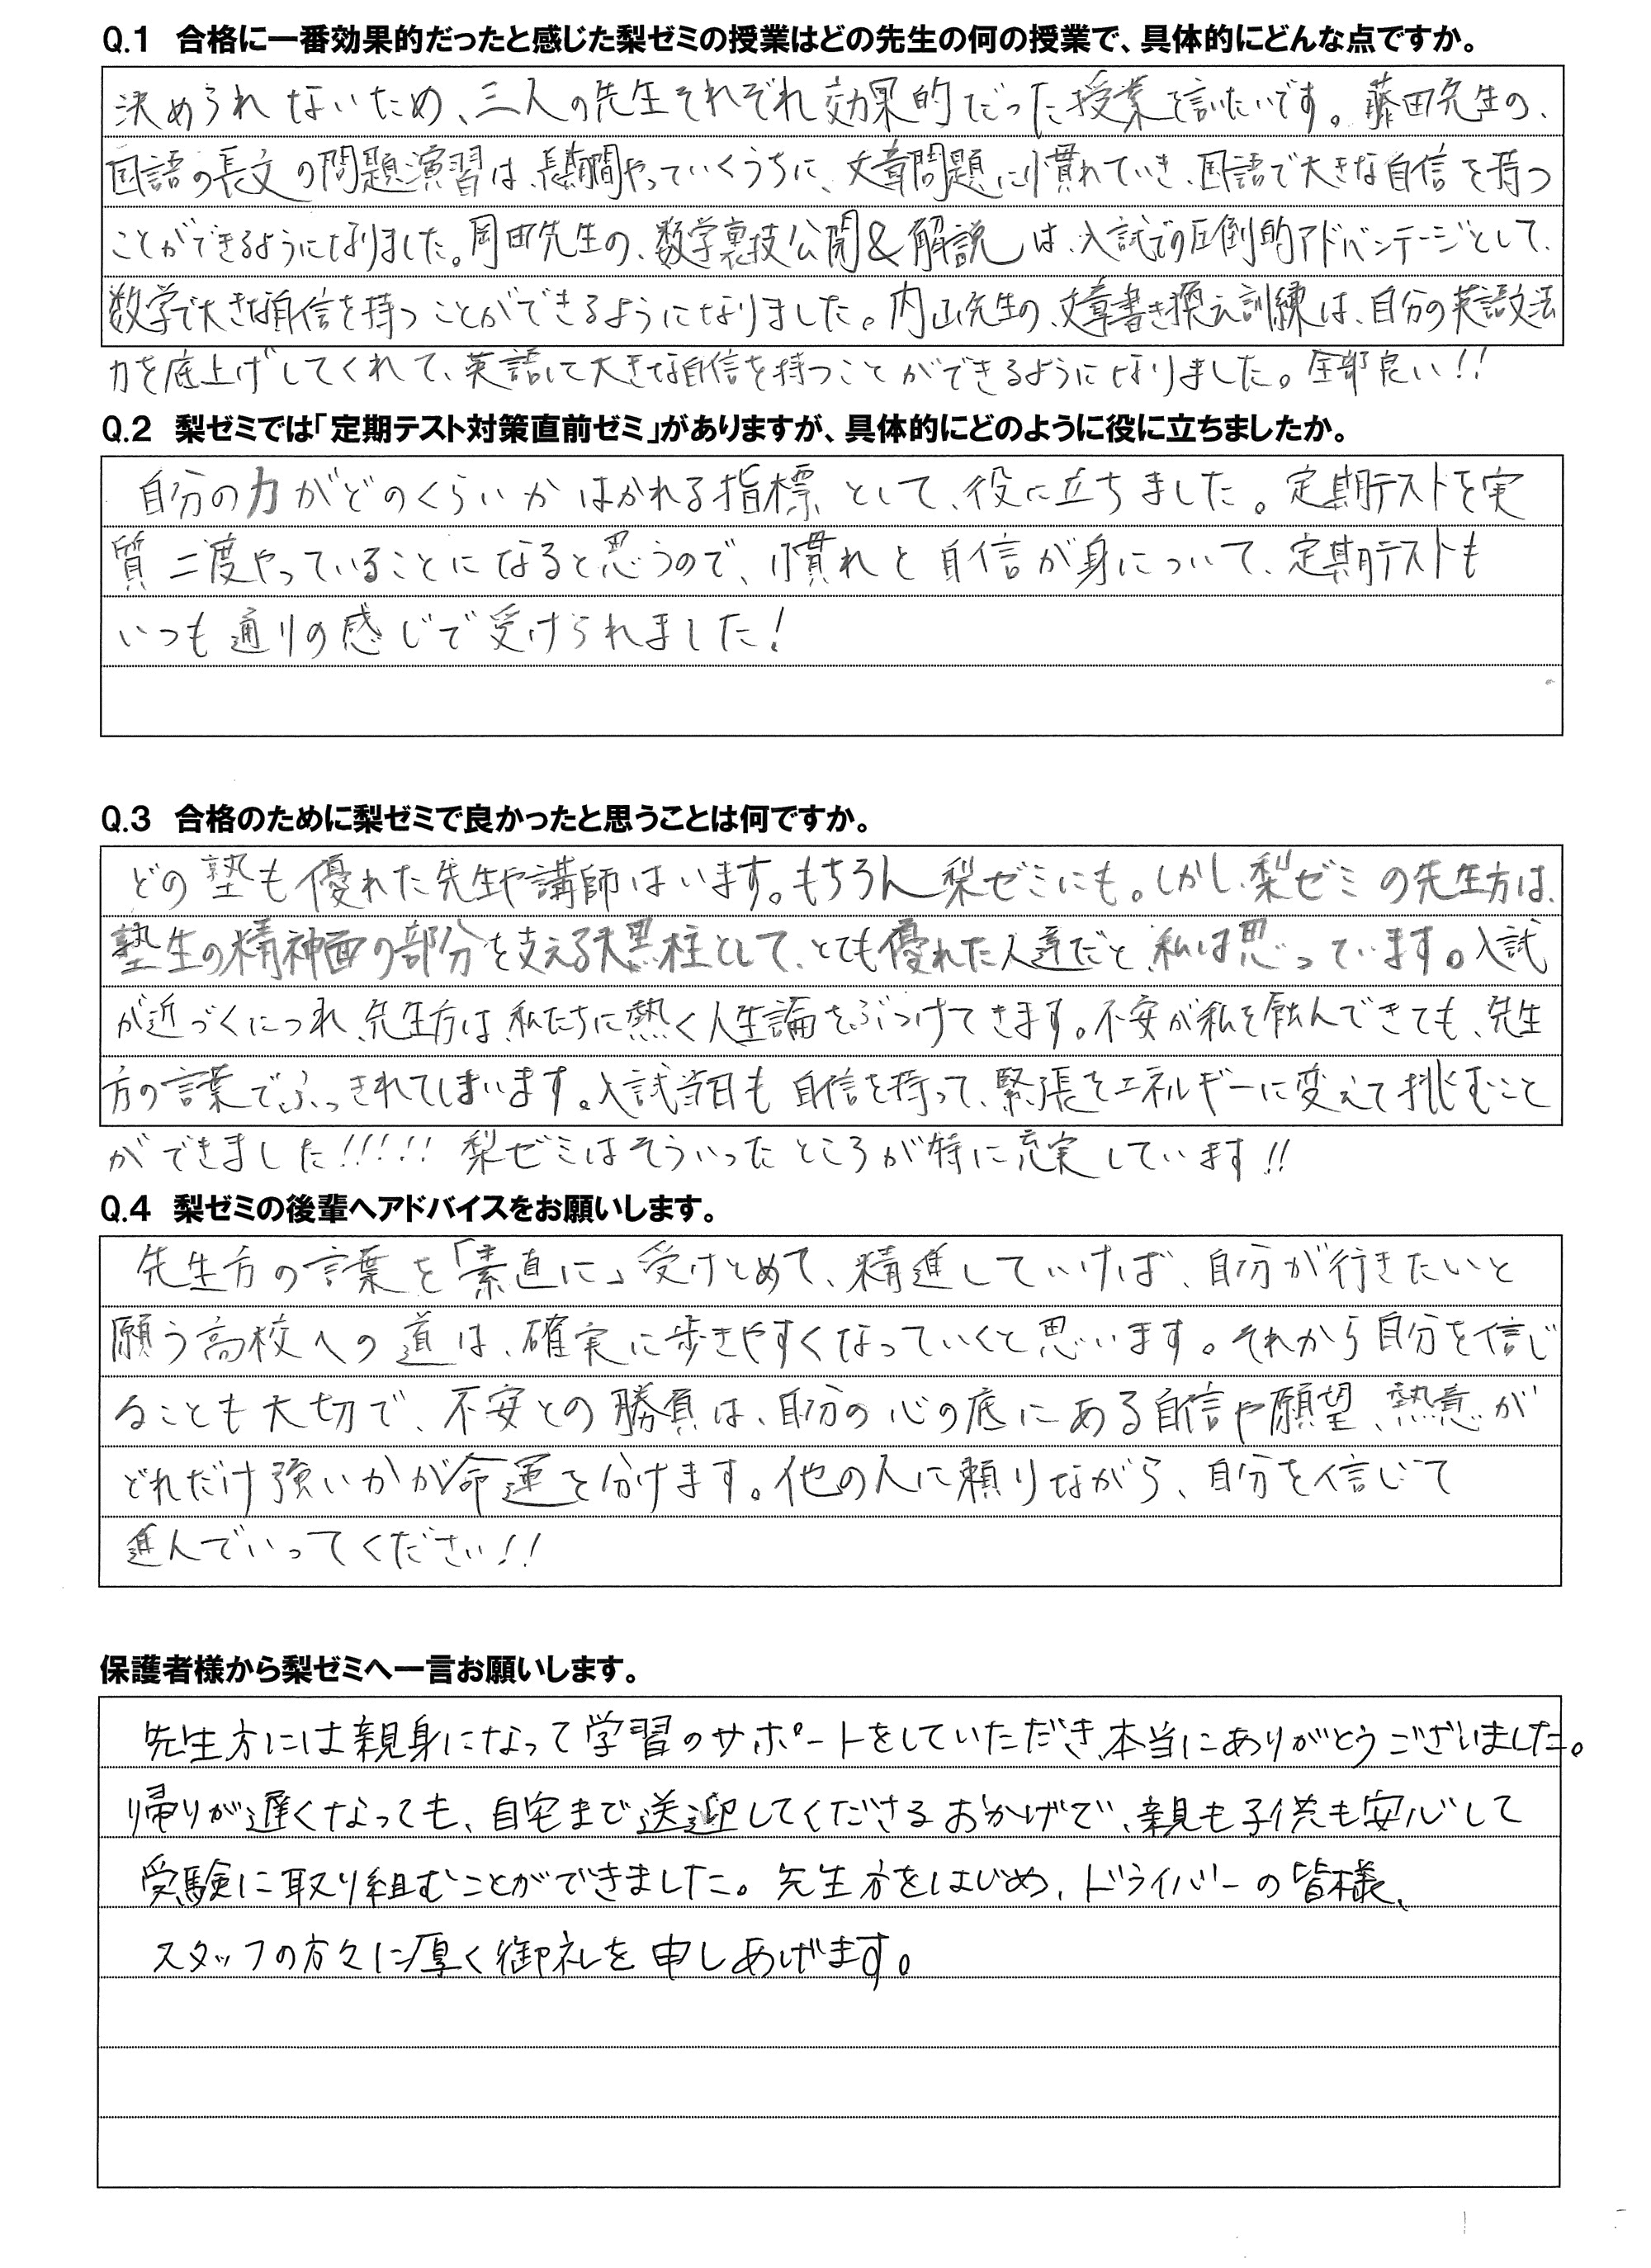 Q.1 合格に一番効果的だったと感じた梨ゼミの授業はどの先生の何の授業で、具体的にどんな点ですか。
決められないため、三人の先生それぞれ効果的だった授業を言いたいです。藤田先生の、
国語の長文の問題演習は、長期間やっていくうちに、文章問題に慣れていき、国語で大きな自信を持つ
ことができるようになりました。岡田先生の、数学裏技公開&解説は、入試での圧倒的アドバンテージとして、
数学で大きな自信を持つことができるようになりました。内山先生の、文章書き換え訓練は、自分の英語文法
力を底上げしてくれて、英語にて大きな自信を持つことができるようになりました。全部良い!!
Q.2 梨ゼミでは「定期テスト対策直前ゼミ」がありますが、具体的にどのように役に立ちましたか。
自分の力がどのくらいかはかれる指標として、役に立ちました。定期テストを実
質二度やっていることになると思うので、慣れと自信が身について、定期テストも
いつも通りの感じで受けられました!
Q.3 合格のために梨ゼミで良かったと思うことは何ですか。
どの塾も優れた先生や講師はいます。もちろん梨ゼミにも。しかし、梨ゼミの先生方は、
塾生の精神面の部分を支える大黒柱として、とても優れた人達だと、私は思っています。入試
が近づくにつれ、先生方は、私たちに熱く人生論をぶつけてきます。不安が私を蝕んできても、先生
方の言葉でふっきれてしまいます。入試当日も自信を持って、緊張をエネルギーに変えて挑むこと
ができました!!!!! 梨ゼミはそういったところが特に充実しています!!
Q.4 梨ゼミの後輩へアドバイスをお願いします。
先生方の言葉を「素直に」受けとめて、精進していけば、自分が行きたいと
願う高校への道は、確実に歩きやすくなっていくと思います。それから自分を信じ
ることも大切で、不安との勝負は、自分の心の底にある自信や願望、熱意が
どれだけ強いかが命運を分けます。他の人に頼りながら、自分を信じて
進んでいってください!!
保護者様から梨ゼミへ一言お願いします。
先生方には親身になって学習のサポートをしていただき、本当にありがとうございました。
帰りが遅くなっても、自宅まで送迎してくださるおかげで、親も子供も安心して
受験に取り組むことができました。先生方をはじめ、ドライバーの皆様、
スタッフの方々に厚く御礼を申しあげます。